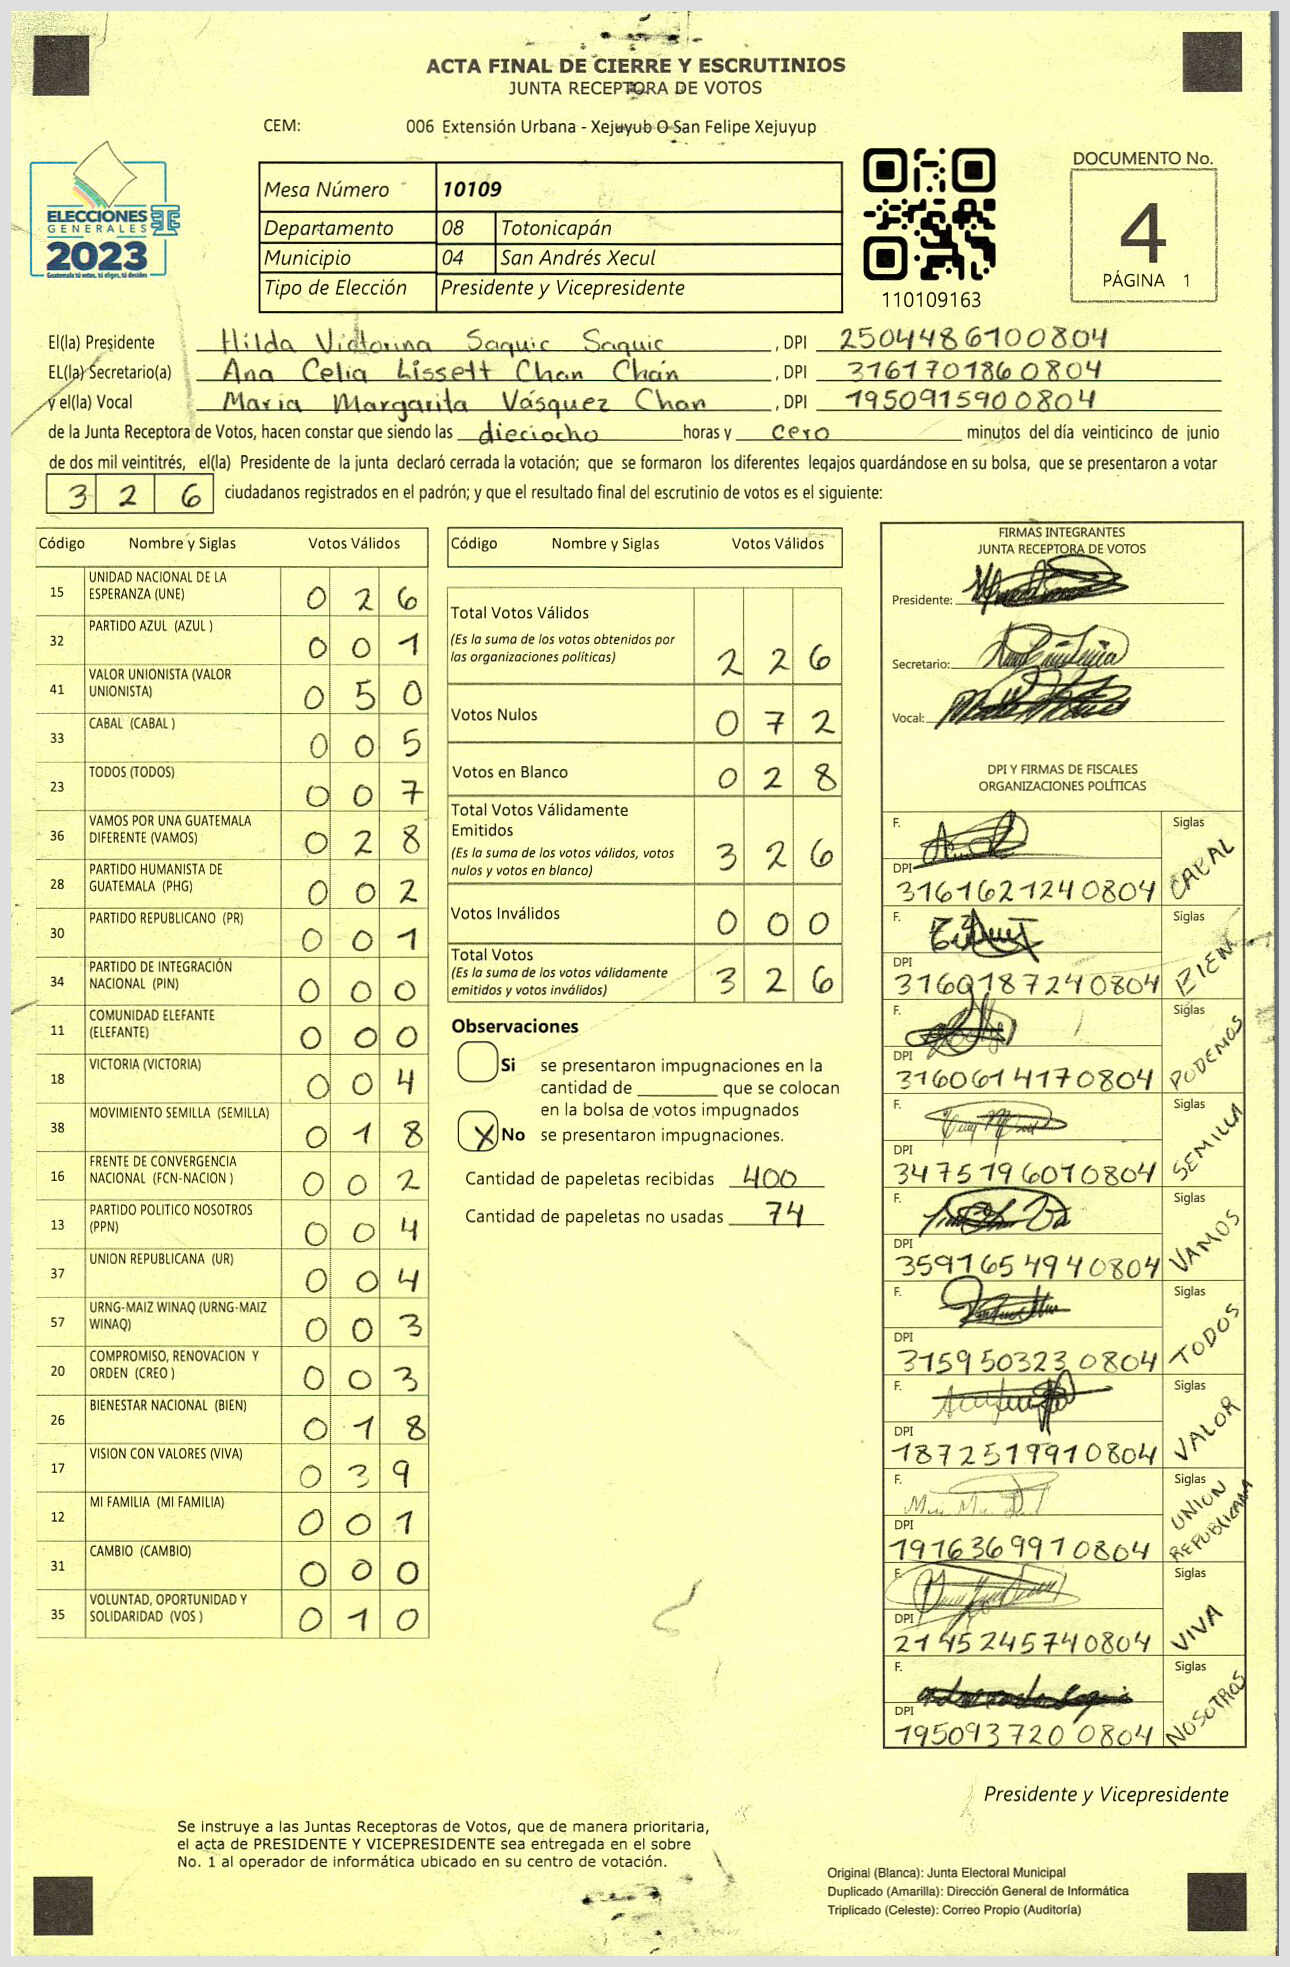 ACTA FINAL DE CIERRE Y ESCRUTINIOS
JUNTA RECEPTORA DE VOTOS
CEM: 006 Extensión Urbana - Xejuyub O San Felipe Xejuyup
ELECCIONES
GENERALES
2023
Guatemala tú votas, tú eliges, tú decides
Mesa Número 10109
Departamento 08 Totonicapán
Municipio 04 San Andrés Xecul
Tipo de Elección Presidente y Vicepresidente
110109163
DOCUMENTO No.
4
PÁGINA 1
El(la) Presidente Hilda Victorina Saquic Saquic, DPI 2504486100804
EL(la) Secretario(a) Ana Celia Lissett Chan Chán, DPI 3161701860804
y el(la) Vocal Maria Margarita Vásquez Chan, DPI 1950915900804
de la Junta Receptora de Votos, hacen constar que siendo las dieciocho horas y cero minutos del día veinticinco de junio
de dos mil veintitrés, el(la) Presidente de la junta declaró cerrada la votación; que se formaron los diferentes legajos guardándose en su bolsa, que se presentaron a votar
3 2 6 ciudadanos registrados en el padrón; y que el resultado final del escrutinio de votos es el siguiente:
Código Nombre y Siglas Votos Válidos
15 UNIDAD NACIONAL DE LA ESPERANZA (UNE) 0 2 6
32 PARTIDO AZUL (AZUL ) 0 0 1
41 VALOR UNIONISTA (VALOR UNIONISTA) 0 5 0
33 CABAL (CABAL ) 0 0 5
23 TODOS (TODOS) 0 0 7
36 VAMOS POR UNA GUATEMALA DIFERENTE (VAMOS) 0 2 8
28 PARTIDO HUMANISTA DE GUATEMALA (PHG) 0 0 2
30 PARTIDO REPUBLICANO (PR) 0 0 1
34 PARTIDO DE INTEGRACIÓN NACIONAL (PIN) 0 0 0
11 COMUNIDAD ELEFANTE (ELEFANTE) 0 0 0
18 VICTORIA (VICTORIA) 0 0 4
38 MOVIMIENTO SEMILLA (SEMILLA) 0 1 8
16 FRENTE DE CONVERGENCIA NACIONAL (FCN-NACION ) 0 0 2
13 PARTIDO POLITICO NOSOTROS (PPN) 0 0 4
37 UNION REPUBLICANA (UR) 0 0 4
57 URNG-MAIZ WINAQ (URNG-MAIZ WINAQ) 0 0 3
20 COMPROMISO, RENOVACION Y ORDEN (CREO ) 0 0 3
26 BIENESTAR NACIONAL (BIEN) 0 1 8
17 VISION CON VALORES (VIVA) 0 3 9
12 MI FAMILIA (MI FAMILIA) 0 0 1
31 CAMBIO (CAMBIO) 0 0 0
35 VOLUNTAD, OPORTUNIDAD Y SOLIDARIDAD (VOS ) 0 1 0
Código Nombre y Siglas Votos Válidos
Total Votos Válidos
(Es la suma de los votos obtenidos por
las organizaciones políticas) 2 2 6
Votos Nulos 0 7 2
Votos en Blanco 0 2 8
Total Votos Válidamente
Emitidos
(Es la suma de los votos válidos, votos
nulos y votos en blanco) 3 2 6
Votos Inválidos 0 0 0
Total Votos
(Es la suma de los votos válidamente
emitidos y votos inválidos) 3 2 6
Observaciones
Si se presentaron impugnaciones en la
cantidad de ________ que se colocan
en la bolsa de votos impugnados
X No se presentaron impugnaciones.
Cantidad de papeletas recibidas 400
Cantidad de papeletas no usadas 74
FIRMAS INTEGRANTES
JUNTA RECEPTORA DE VOTOS
Presidente:
Secretario:
Vocal:
DPI Y FIRMAS DE FISCALES
ORGANIZACIONES POLÍTICAS
F. Siglas
DPI
3161621240804 CABAL
F. Siglas
DPI
3160187240804 BIEN
F. Siglas
DPI
3160614170804 PODEMOS
F. Siglas
DPI
3475196010804 SEMILLA
F. Siglas
DPI
3591654940804 VAMOS
F. Siglas
DPI
3159503230804 TODOS
F. Siglas
DPI
1872519910804 VALOR
F. Siglas
DPI
1916369910804 UNION REPUBLICANA
F. Siglas
DPI
2145245740804 VIVA
F. Siglas
DPI
1950937200804 NOSOTROS
Presidente y Vicepresidente
Se instruye a las Juntas Receptoras de Votos, que de manera prioritaria,
el acta de PRESIDENTE Y VICEPRESIDENTE sea entregada en el sobre
No. 1 al operador de informática ubicado en su centro de votación.
Original (Blanca): Junta Electoral Municipal
Duplicado (Amarilla): Dirección General de Informática
Triplicado (Celeste): Correo Propio (Auditoría)